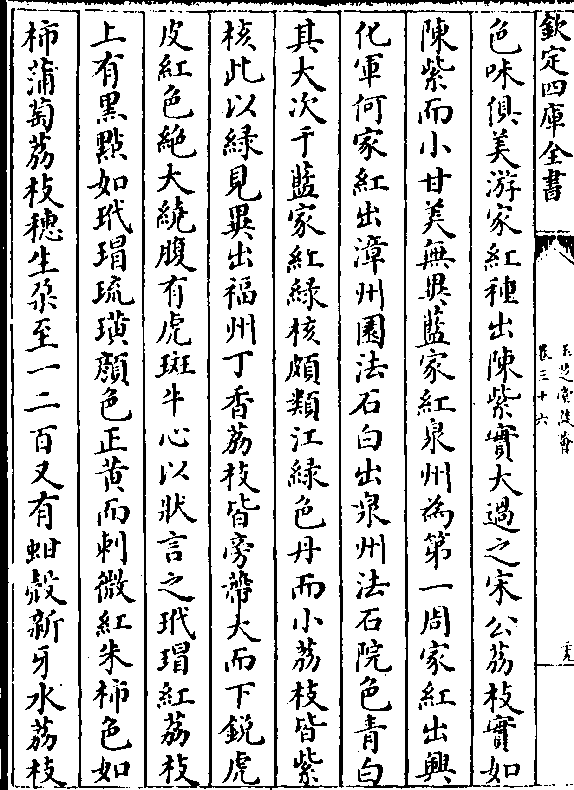 欽定四庫全書
卷三十六
色味俱美游家紅種出陳紫實大過之宋公荔枝實如
陳紫而小甘美無異藍家紅泉州為第一周家紅出興
化軍何家紅出漳州圓法石白出泉州法石院色青白
其大次于藍家紅綠核頗類江綠色丹而小荔枝皆紫
核此以綠見異出福州丁香荔枝皆旁蔕大而下銳虎
皮紅色絶大繞腹有虎斑牛心以狀言之玳瑁紅荔枝
上有黑點如玳瑁琉璜顔色正黄而刺微紅朱柿色如
柿蒲萄荔枝穗生朶至一二百又有蚶殻新牙水荔枝